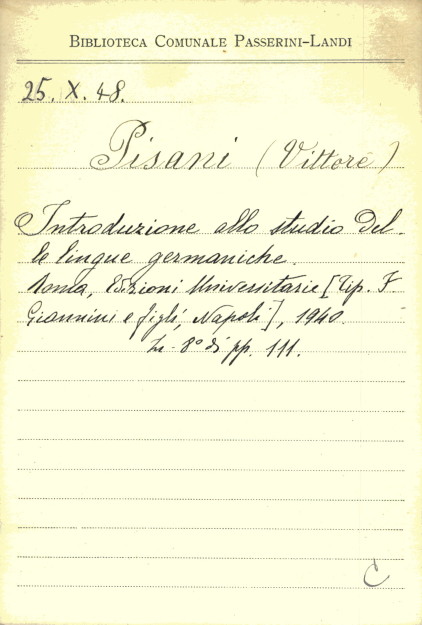 BIBLIOTECA COMUNALE PASSERINI-LANDI
25. X. 48.
Pisani (Vittore)
Introduzione allo studio del-
le lingue germaniche.
Roma, Edizioni Universitarie [Tip. F.
Giannini e figli, Napoli], 1940.
In-8° di pp. 111.
C